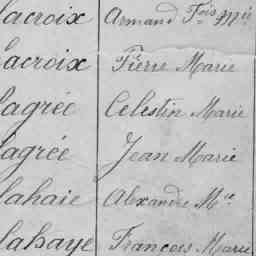 Lacroix Armand Fois Mie
Lacroix Pierre Marie
Lagrée Celestin Marie
Lagrée Jean Marie
Lahaie Alexandre Mie
Lahaye François Marie